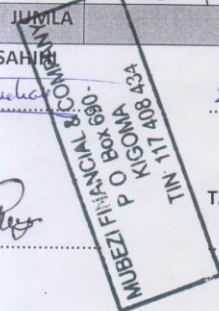 JUMLA
SAHIHI
MUBEZI FINANCIAL & COMPANY
P O Box 690-
KIGOMA
TIN: 117 408 434